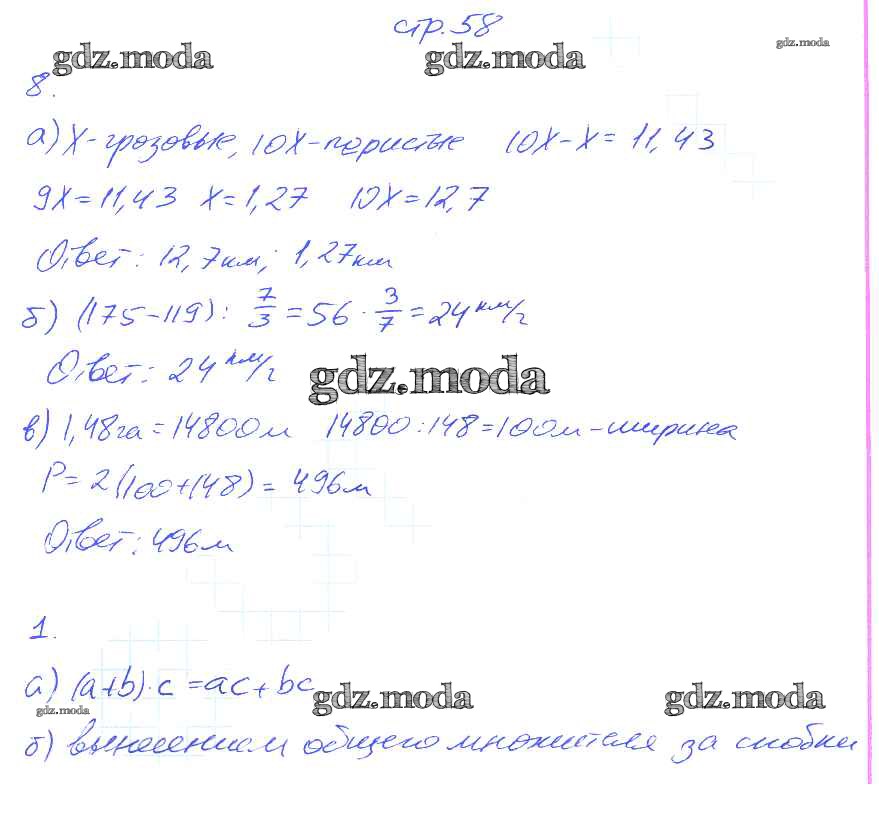 стр. 58
gdz.moda gdz.moda gdz.moda
8.
а) X - грозовые, 10X - перистые 10X - X = 11,43
9X = 11,43 X = 1,27 10X = 12,7
Ответ: 12,7 км; 1,27 км
б) (175 - 119) : 7/3 = 56 · 3/7 = 24 км/г
Ответ: 24 км/г
gdz.moda
в) 1,48 га = 14800 м 14800 : 148 = 100 м - ширина
P = 2 (100 + 148) = 496 м
Ответ: 496 м
1.
а) (a + b) · c = ac + bc
gdz.moda gdz.moda gdz.moda
б) вынесением общего множителя за скобки